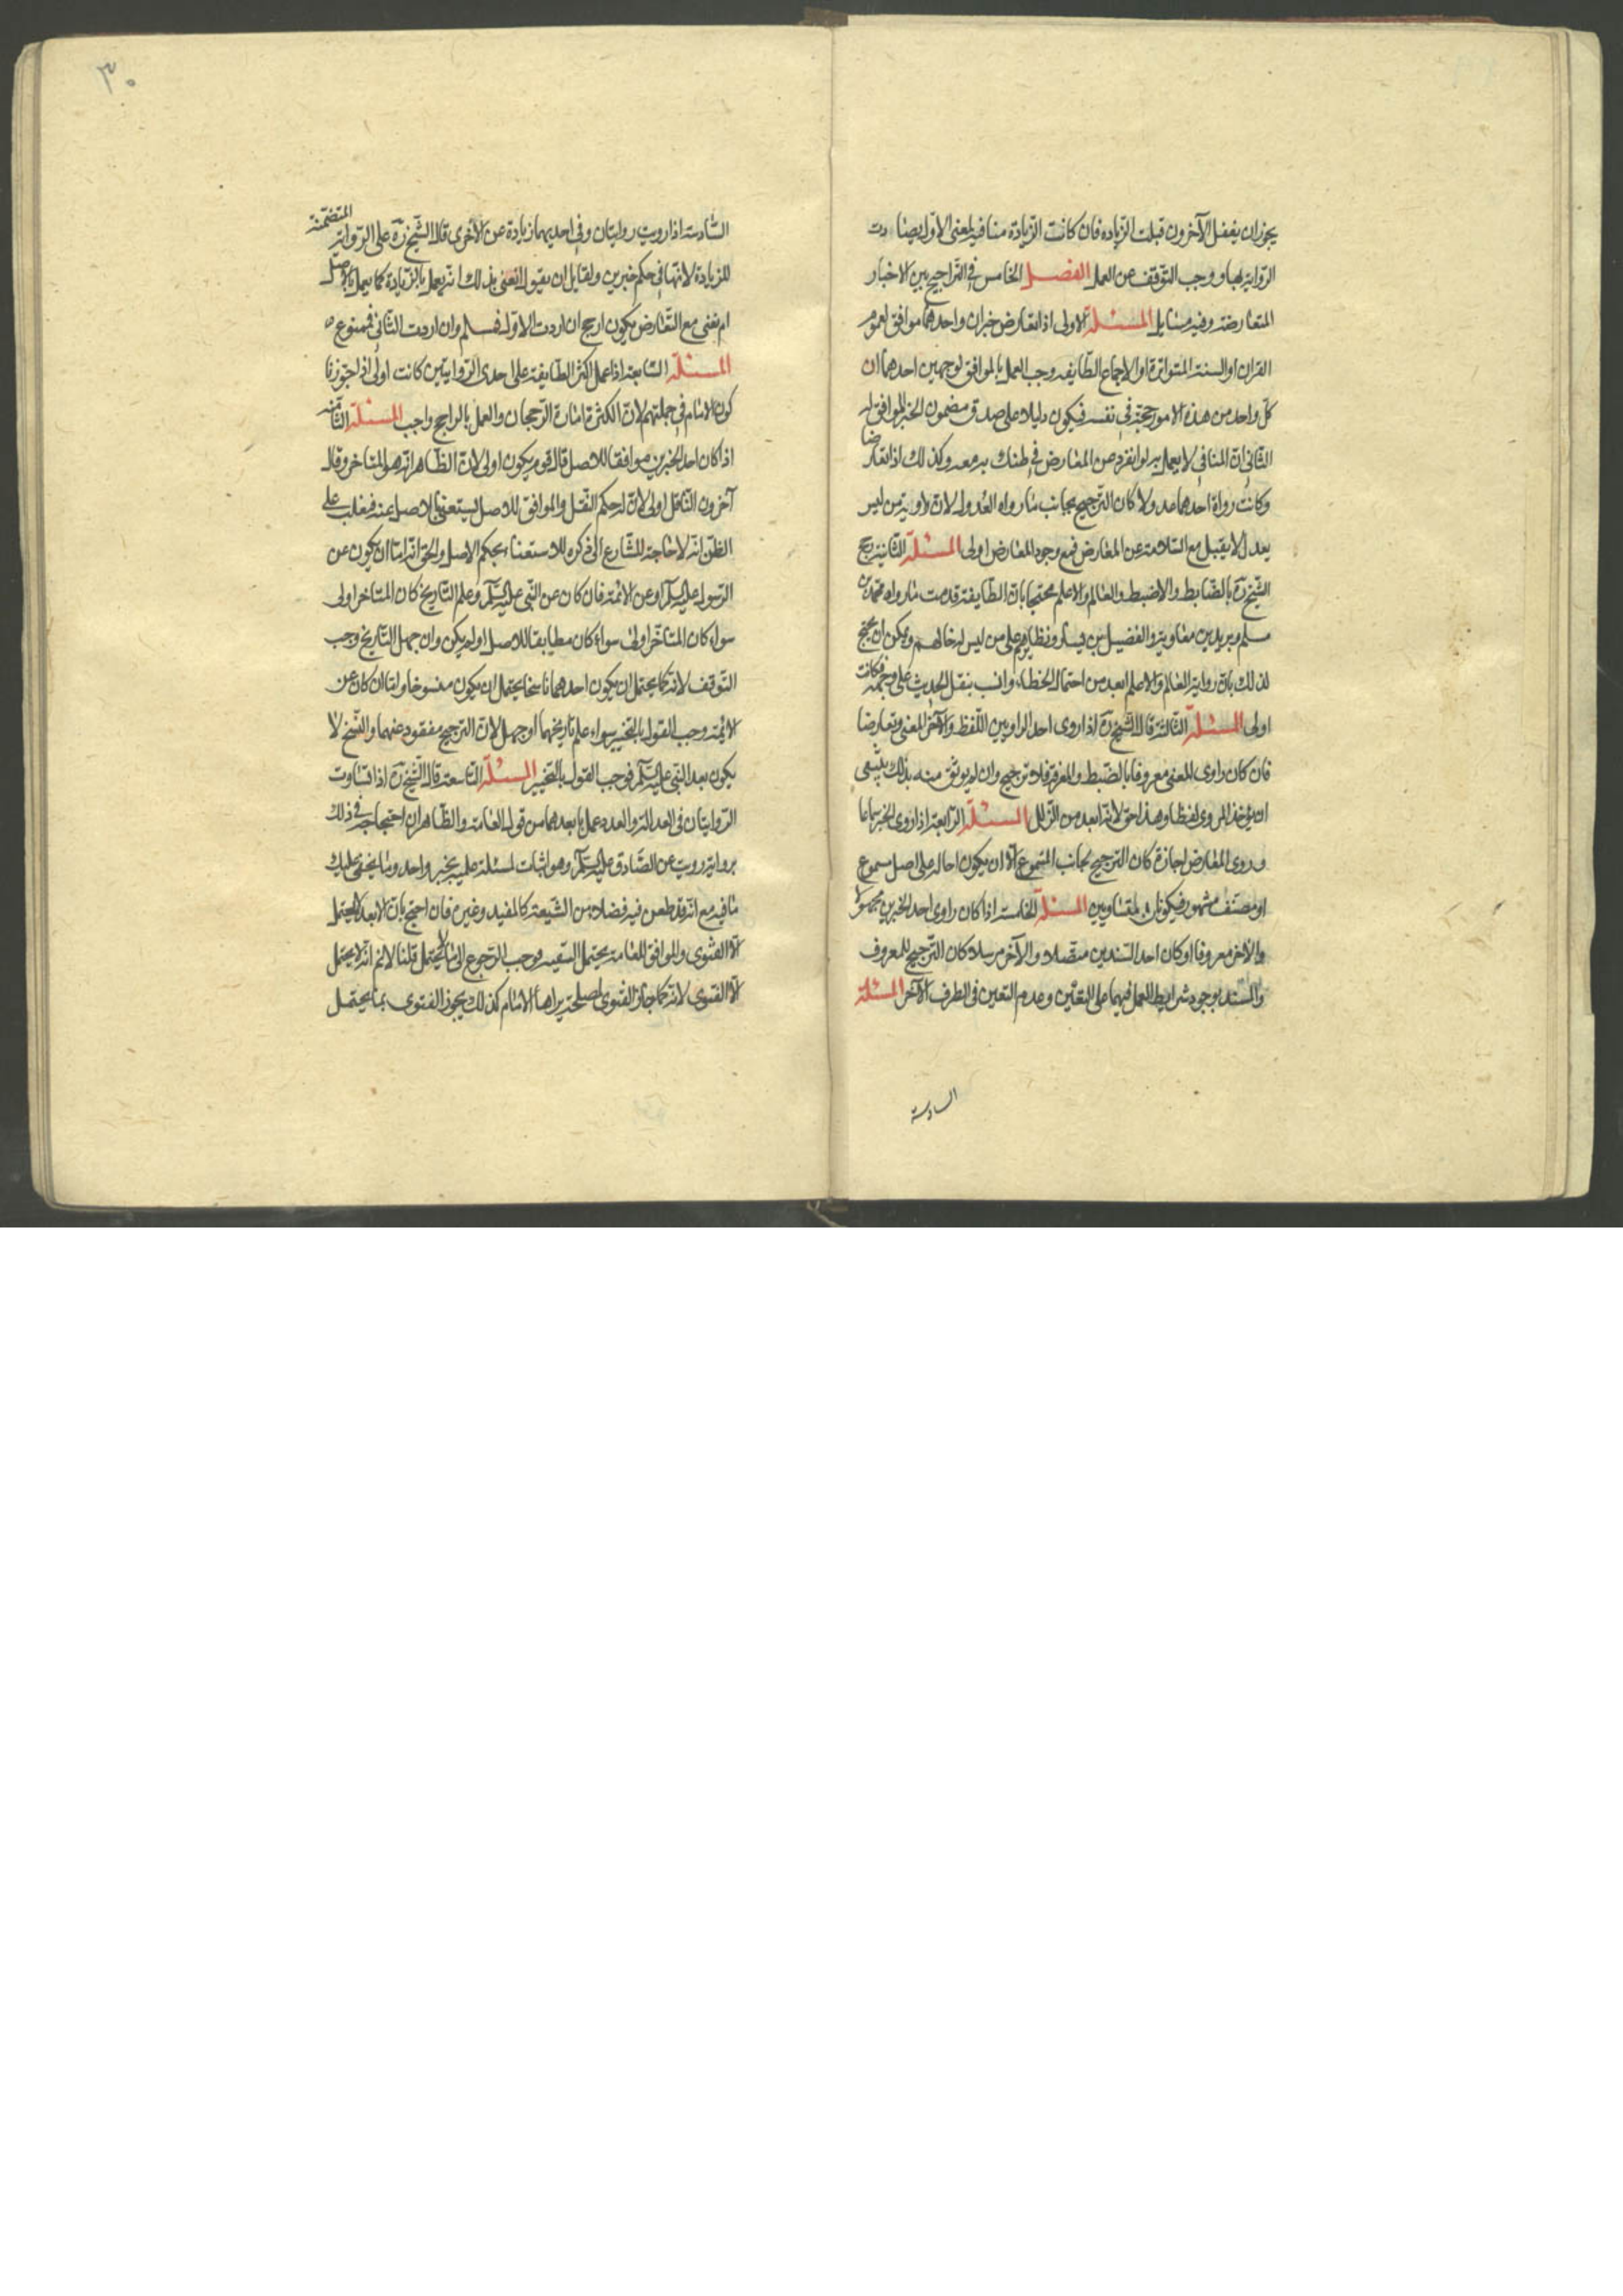 يجوز ان يغفل الآخرون قبلت الزياده فان كانت الزيادة منافيه لمعنى الاول بصفا ردت
الرواية بها ووجب التوقف عن العمل الفصل الخامس في التراجيح بين الاخبار
المتعارضة وفيه مسايل المسئلة الاولى اذا تعارض خبران واحدهما موافق لعموم
القران او السنة المتواترة او لاجماع الطايفه وجب العمل بالموافق لوجهين احدهما ان
كل واحد من هذه الامور حجة في نفسه فيكون دليلا على صدق مضمون الخبر الموافق له
الثاني ان المنافي لا يعمل به لو انفرد عن المعارض فما ظنك به معه وكذلك اذا تعارضا
وكانت رواة احدهما عدولا كان الترجيح بجانب ما رواه العدول لان رواية من ليس
بعدل لا يقبل مع السلامة عن المعارض فمع وجود المعارض اولى المسئلة الثانية رجح
الشيخ ره بالضابط والاضبط والعالم والاعلم محتجا بان الطايفة قدمت ما رواه محمد بن
مسلم وبريد بن معاوية والفضيل بن يسار ونظايرهم على من ليس له حالهم ويمكن ان يحتج
لذلك بان رواية العالم والاعلم ابعد من احتمال الخطاء وانسب بنقل الحديث على وجهه فكانت
اولى المسئلة الثالثة قال الشيخ ره اذا روى احد الراويين اللفظ والآخر المعنى وتعارضا
فان كان راوي المعنى معروفا بالضبط والمعرفة فلا ترجيح وان لم يوثق منه بذلك ينبغي
ان يؤخذ المروي لفظا وهذا حق لانه ابعد من الزلل المسئلة الرابعة اذا روى الخبر سماعا
وروى المعارض اجازة كان الترجيح لجانب المسموع الا ان يكون احاله على اصل مسموع
او مصنف مشهور فيكونان متساويين المسئلة الخامسة اذا كان راوي احد الخبرين مجهولا
والآخر معروفا او كان احد السندين متصلا والآخر مرسلا كان الترجيح للمعروف
والسند بوجود شرايط العمل فيهما على اليقين وعدم التعين في الطرف الآخر المسئلة
السادسة
٣٠
السادسة اذا رويت روايتان وفي احديهما زيادة عن الاخرى قال الشيخ ره على الرواية المتضمنة
للزيادة لانها في حكم خبرين ولقايل ان يقول العني بذلك انه يعمل بالزيادة كما يعمل بالاصل
ام تعني مع التعارض يكون ارجح ان اردت الاول فمسلم وان اردت الثاني فممنوع
المسئلة السابعة اذا عمل اكثر الطايفة على احدى الروايتين كانت اولى اذا جوزنا
كون الامام في جملتهم لان الكثرة امارة الرجحان والعمل بالراجح واجب المسئلة الثامنة
اذا كان احد الخبرين موافقا للاصل قال قوم يكون اولى لان الظاهر انه هو المتاخر وقال
آخرون الناقل اولى لانه له حكم النقل والموافق للاصل يستغني بالاصل عنه فيغلب على
الظن انه لا حاجة للشارع الى ذكره للاستغناء بحكم الاصل والحق انه اما ان يكون عن
الرسول عليه السلم او عن الائمة فان كان عن النبي عليه السلم وعلم التاريخ كان المتاخر اولى
سواء كان المتاخر اولى سواء كان مطابقا للاصل او لم يكن وان جهل التاريخ وجب
التوقف لانه كما يحتمل ان يكون احدهما ناسخا يحتمل ان يكون منسوخا واما ان كان عن
الائمة وجب القول بالتخيير سواء علم تاريخهما او جهل لان الترجيح مفقود عنهما والنسخ لا
يكون بعد النبي عليه السلم فوجب القول بالتخيير المسئلة التاسعة قال الشيخ ره اذا تساوت
الروايتان في العدالة والعدد عمل بابعدهما من قول العامة والظاهر ان احتجاجه في ذلك
برواية رويت عن الصادق عليه السلم وهو اثبات لمسئلة علمية بخبر واحد وما يخفى عليك
ما فيه مع انه قد طعن فيه فضلاء من الشيعة كالمفيد وغيره فان احتج بان الابعد لا يحتمل
الا الفتوى والموافق للعامة يحتمل التقيه فوجب الرجوع الى ما لا يحتمل قلنا لا نم انه لا يحتمل
الا الفتوى لانه كما جاز الفتوى لمصلحة يراها الامام كذلك يجوز الفتوى بما يحتمل